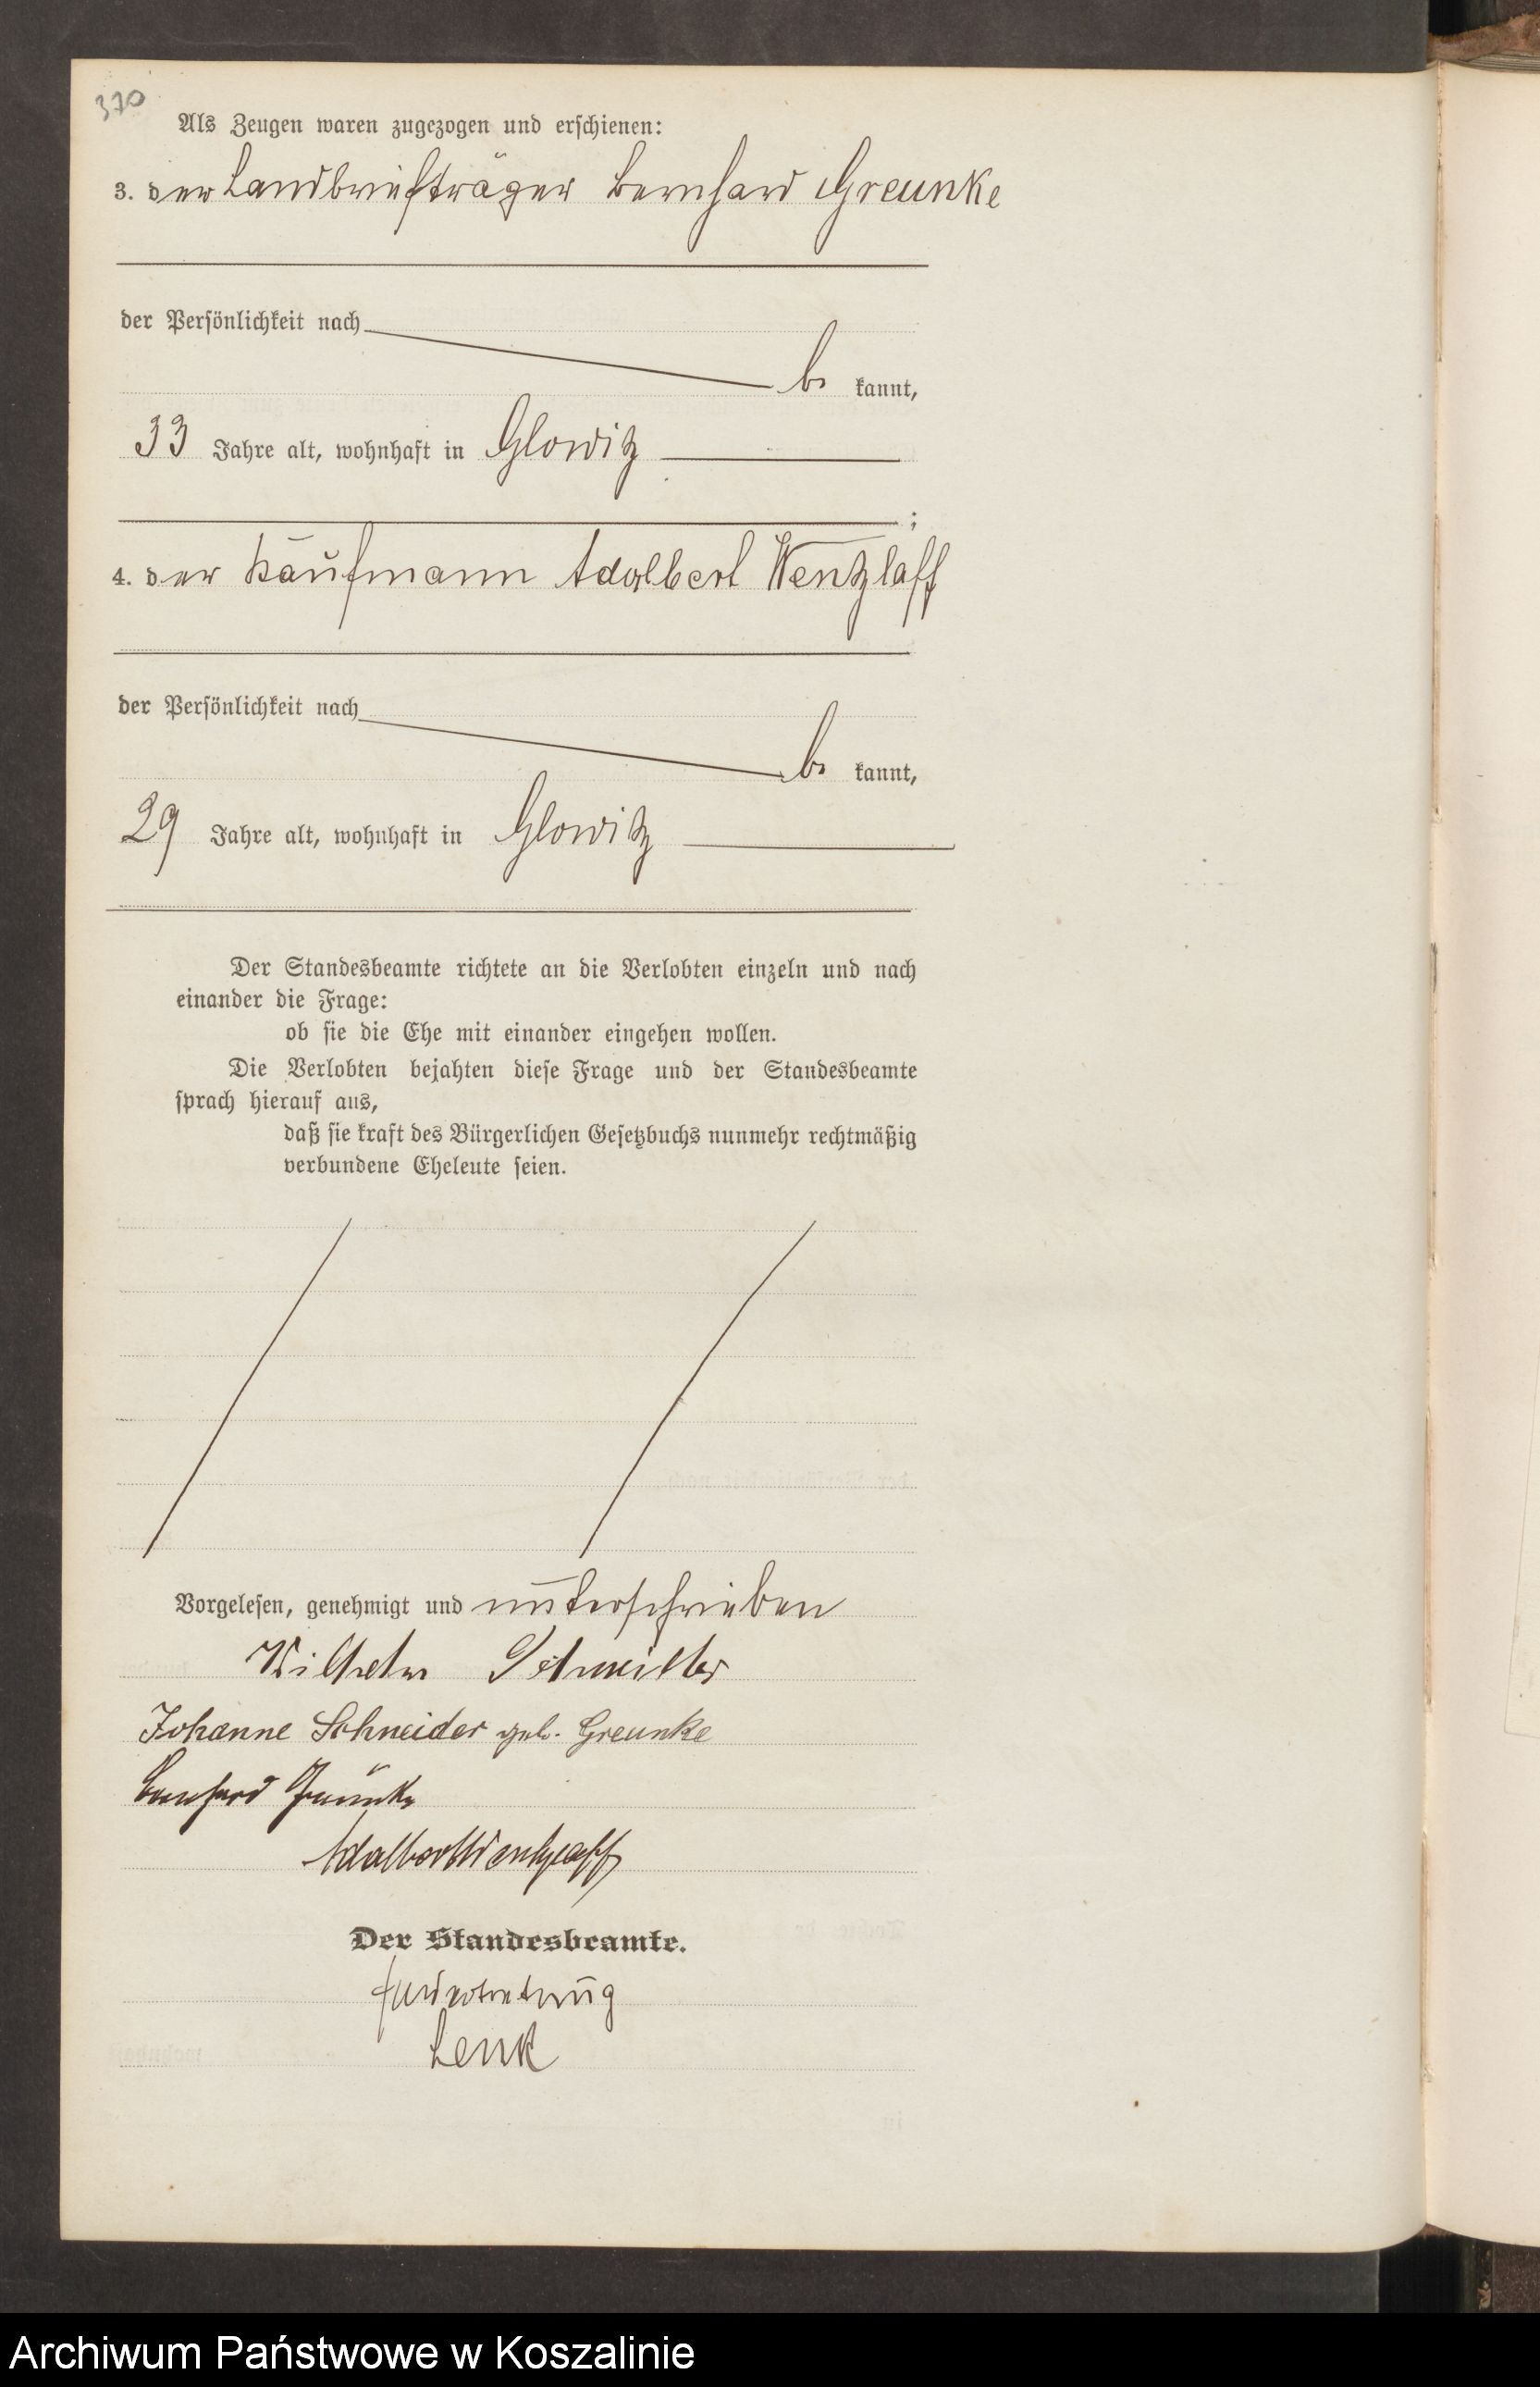 370
Als Zeugen waren zugezogen und erschienen:
3. der Landbriefträger Bernhard Greunke
der Persönlichkeit nach
be kannt,
33 Jahre alt, wohnhaft in Glowitz
;
4. der Kaufmann Adalbert Wentzlaff
der Persönlichkeit nach
be kannt,
29 Jahre alt, wohnhaft in Glowitz
Der Standesbeamte richtete an die Verlobten einzeln und nach
einander die Frage:
ob sie die Ehe mit einander eingehen wollen.
Die Verlobten bejahten diese Frage und der Standesbeamte
sprach hierauf aus,
daß sie kraft des Bürgerlichen Gesetzbuchs nunmehr rechtmäßig
verbundene Eheleute seien.
Vorgelesen, genehmigt und unterschrieben
Wilhelm
Johanne Schneider geb. Greunke
Bernhard Greunke
Adalbert Wentzlaff
Der Standesbeamte.
In Vertretung
Lenk
Archiwum Państwowe w Koszalinie